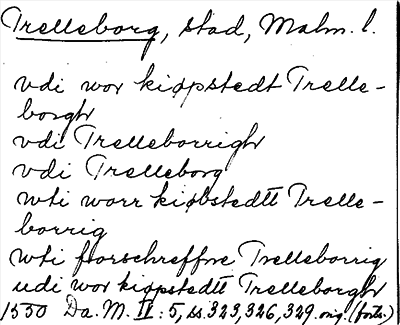 Trelleborg, stad, Malm. l.
vdi wor kiøpstedt Trelle-
borghr
vdi Trelleborrighr
vdi Trelleborg
wti worr kiøbstedtt Trelle-
borrig
wti fforschreffne Trelleborrig
udi wor kiøpstedtt Trelleborghr
1550 Da. M. IV : 5, ss. 323, 326, 329. orig. (forts.)